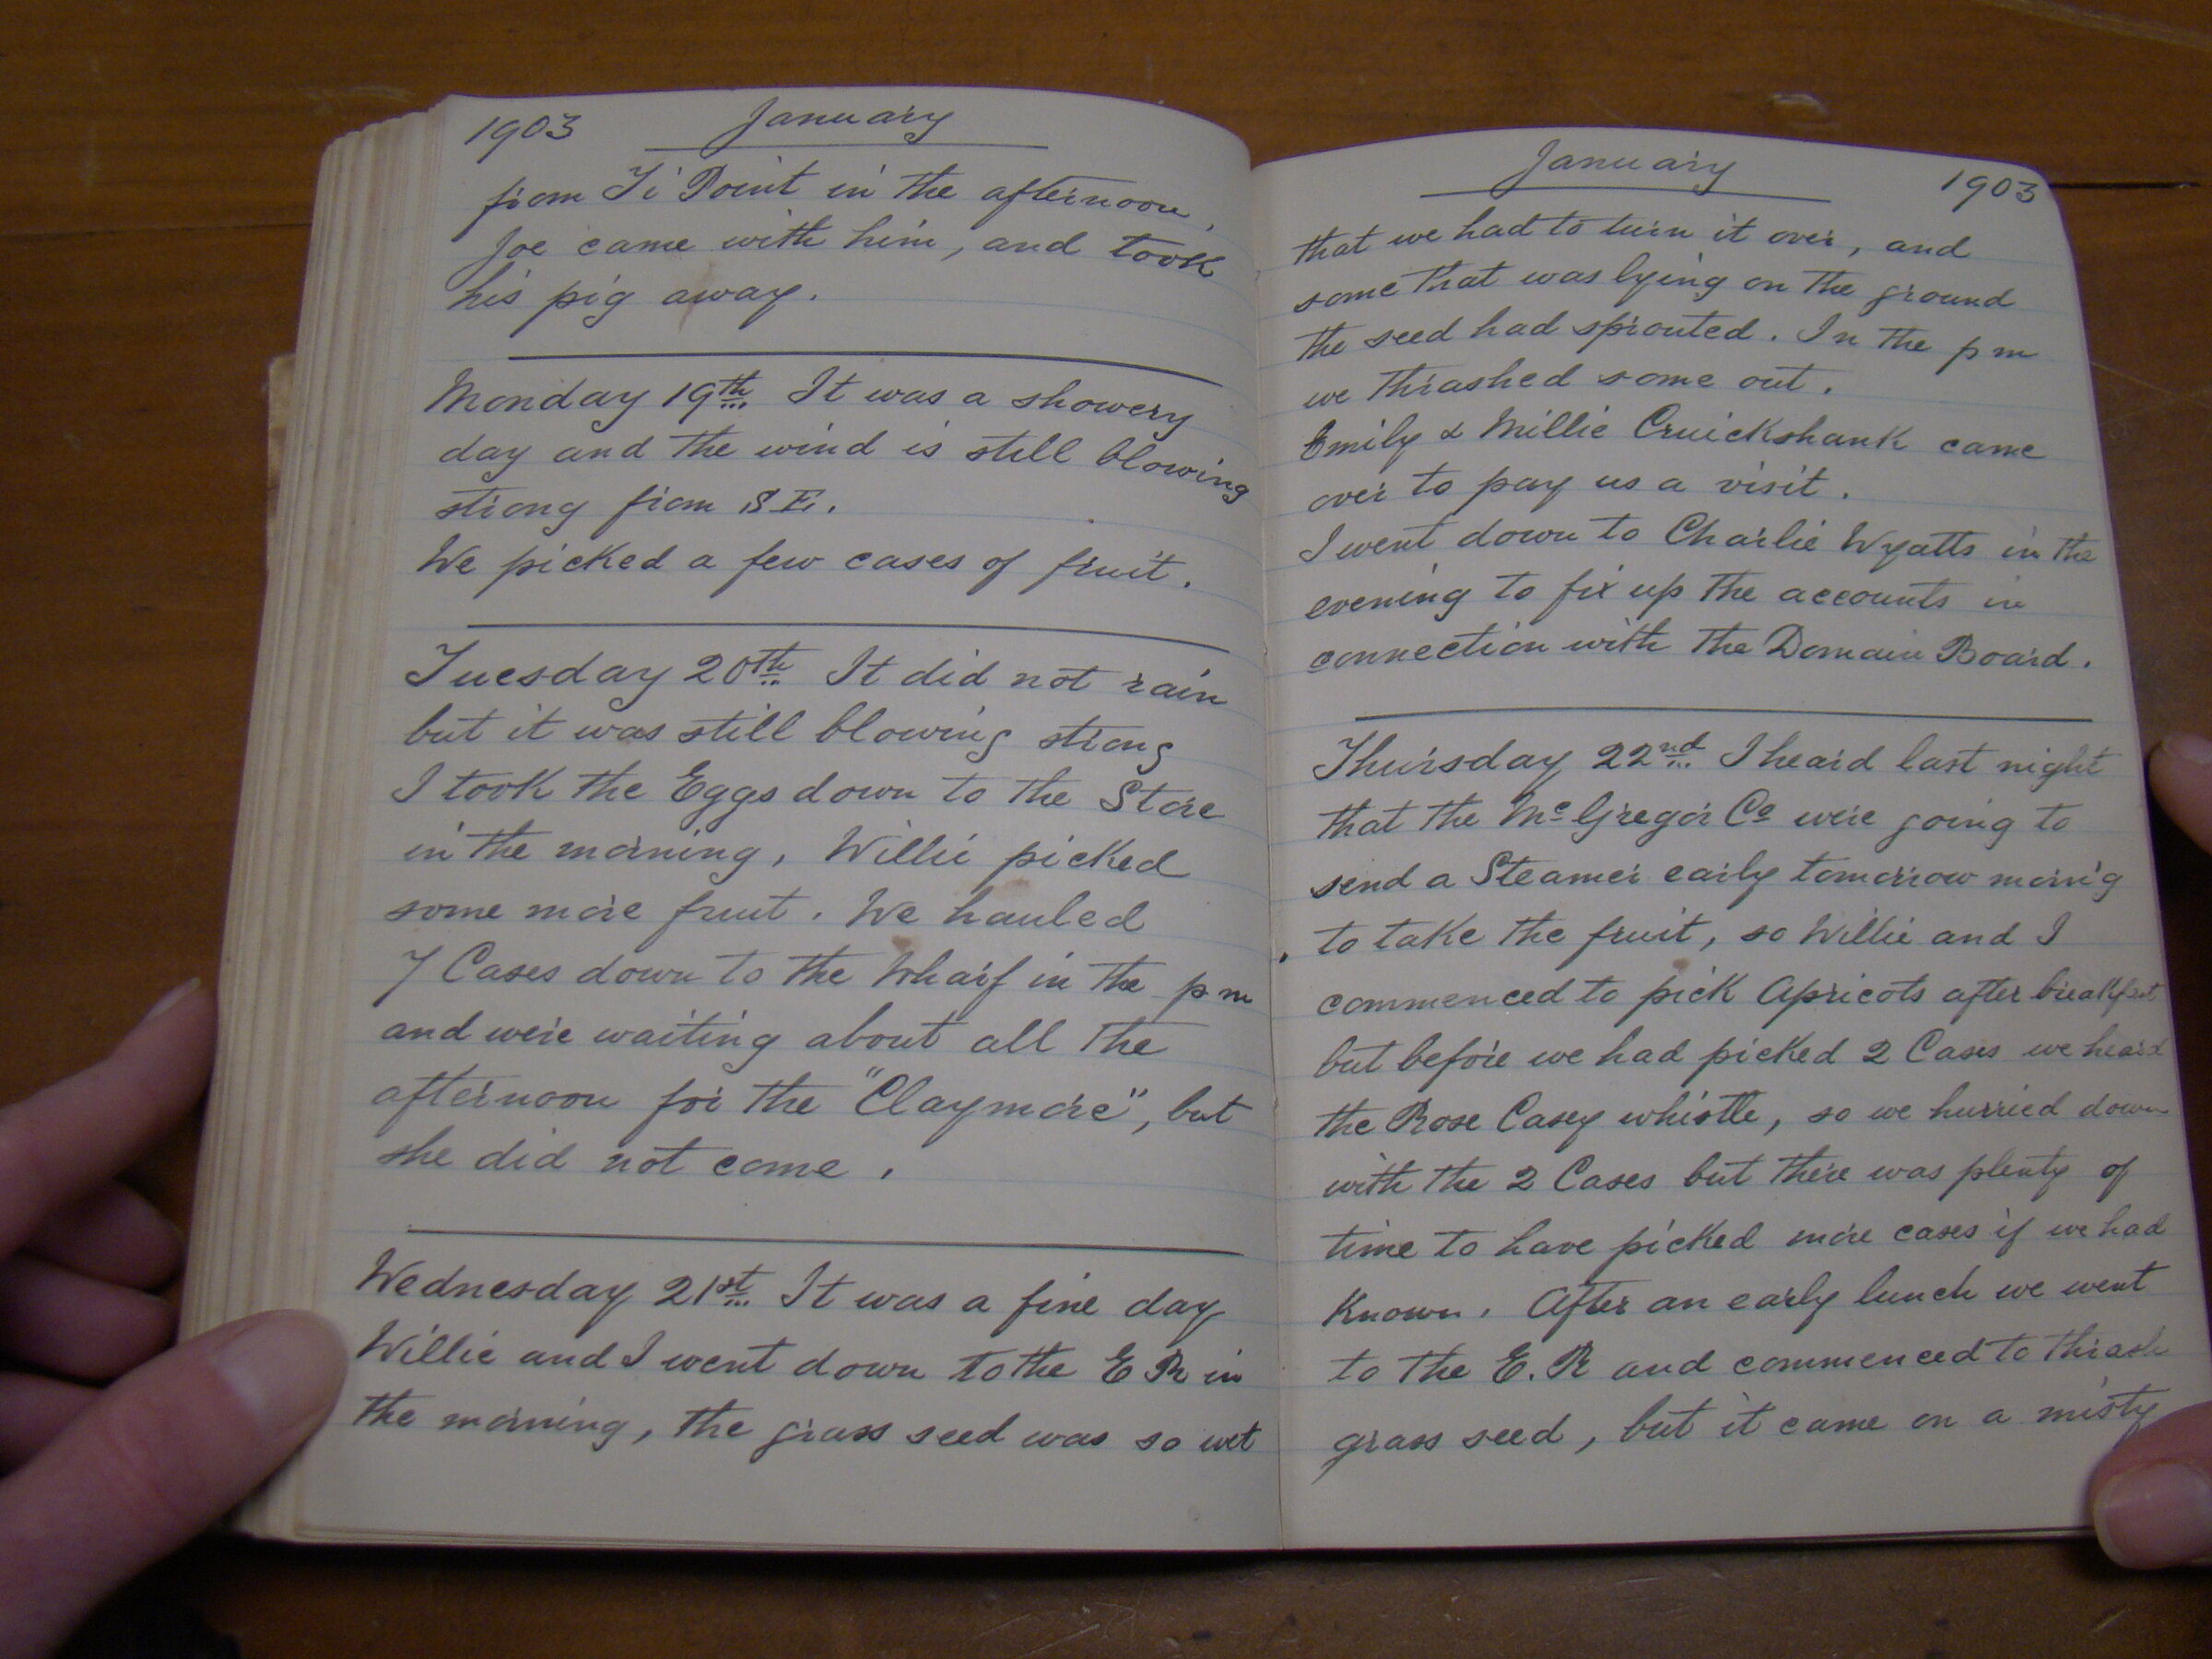 1903 January
from Ti Point in the afternoon
Joe came with him, and took
his pig away.
Monday 19th It was a showery
day and the wind is still blowing
strong from S E.
We picked a few cases of fruit.
Tuesday 20th It did not rain
but it was still blowing strong
I took the Eggs down to the Store
in the morning, Willie picked
some more fruit. We hauled
7 Cases down to the Wharf in the p m
and were waiting about all the
afternoon for the "Claymore", but
she did not come.
Wednesday 21st It was a fine day
Willie and I went down to the E R in
the morning, the grass seed was so wet
January 1903
that we had to turn it over, and
some that was lying on the ground
the seed had sprouted. In the p m
we thrashed some out.
Emily & Millie Cruickshank came
over to pay us a visit.
I went down to Charlie Wyatts in the
evening to fix up the accounts in
connection with the Domain Board.
Thursday 22nd I heard last night
that the McGregor Co were going to
send a Steamer early tomorrow morn'g
to take the fruit, so Willie and I
commenced to pick Apricots after breakfast
but before we had picked 2 Cases we heard
the Rose Casey whistle, so we hurried down
with the 2 Cases but there was plenty of
time to have picked more cases if we had
known. After an early lunch we went
to the E. R and commenced to thrash
grass seed, but it came on a misty